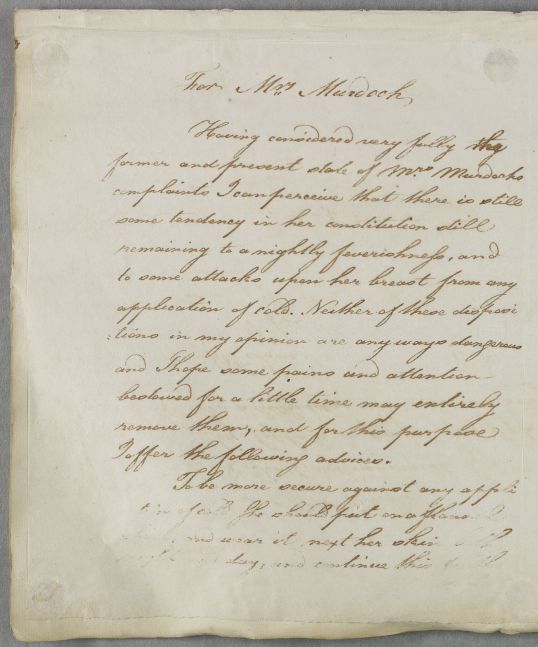 For Mrs. Murdoch,
Having considered very fully the
former and present state of Mrs. Murdochs
complaints I can perceive that there is still
some tendency in her constitution still
remaining to a nightly feverishness, and
to some attacks upon her breast from any
application of cold. Neither of these disposi
:tions in my opinion are any ways dangerous
and I hope some pains and attention
bestowed for a little time may entirely
remove them, and for this purpose
I offer the following advices.
To be more secure against any appli
of cold She should put on a flannel
and wear it next her skin
day, and continue this